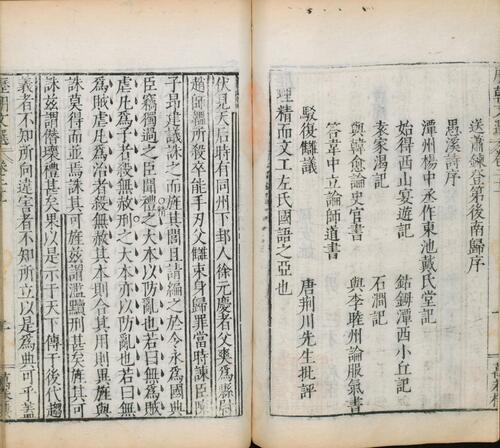 送蕭鍊登第後南歸序
愚溪詩序
潭州楊中丞作東池戴氏堂記
始得西山宴遊記
鈷鉧潭西小丘記
袁家渴記
石澗記
與韓愈論史官書
與李睦州論服氣書
答韋中立論師道書
駁復讎議
唐荆川先生批評
理精而文工左氏國語之亞也
伏見天后時有同州下邽人徐元慶者父爽爲縣尉
趙師韞所殺卒能手刃父讎束身歸罪當時諫臣陳
子昂建議誅之而旌其閭且請編之於令永爲國典
臣竊獨過之臣聞禮之大本以防亂也若曰無爲賊
虐凡爲子者殺無赦刑之大本亦以防亂也若曰無
爲賊虐凡爲治者殺無赦其本則合其用則異旌與
誅莫得而並焉誅其可旌茲謂濫黷刑甚矣旌其可
誅茲謂僭壞禮甚矣果以是示于天下傳于後代趨
義者不知所向違害者不知所立以是爲典可乎蓋